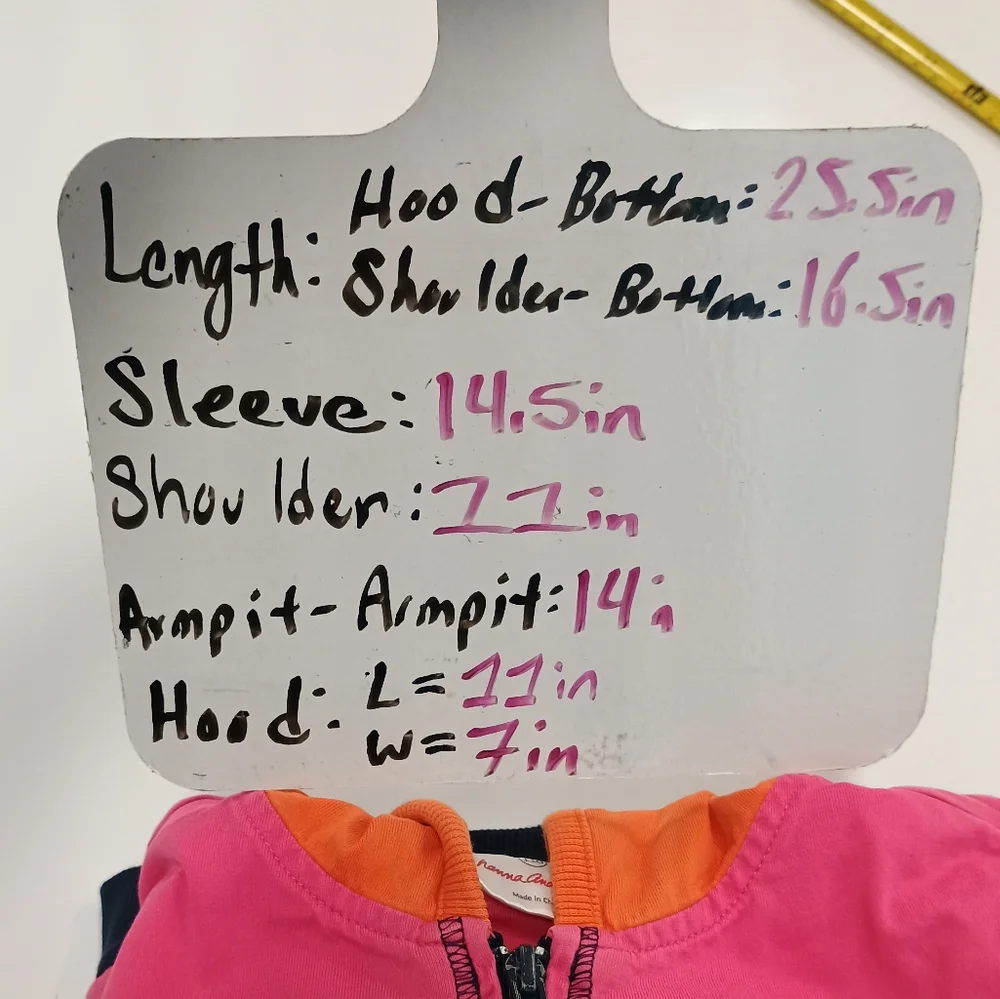 Length: Hood-Bottom: 25.5in
Shoulder-Bottom: 16.5in
Sleeve: 14.5in
Shoulder: 11in
Armpit-Armpit: 14in
Hood: L = 11in
W = 7in
hanna
Made in